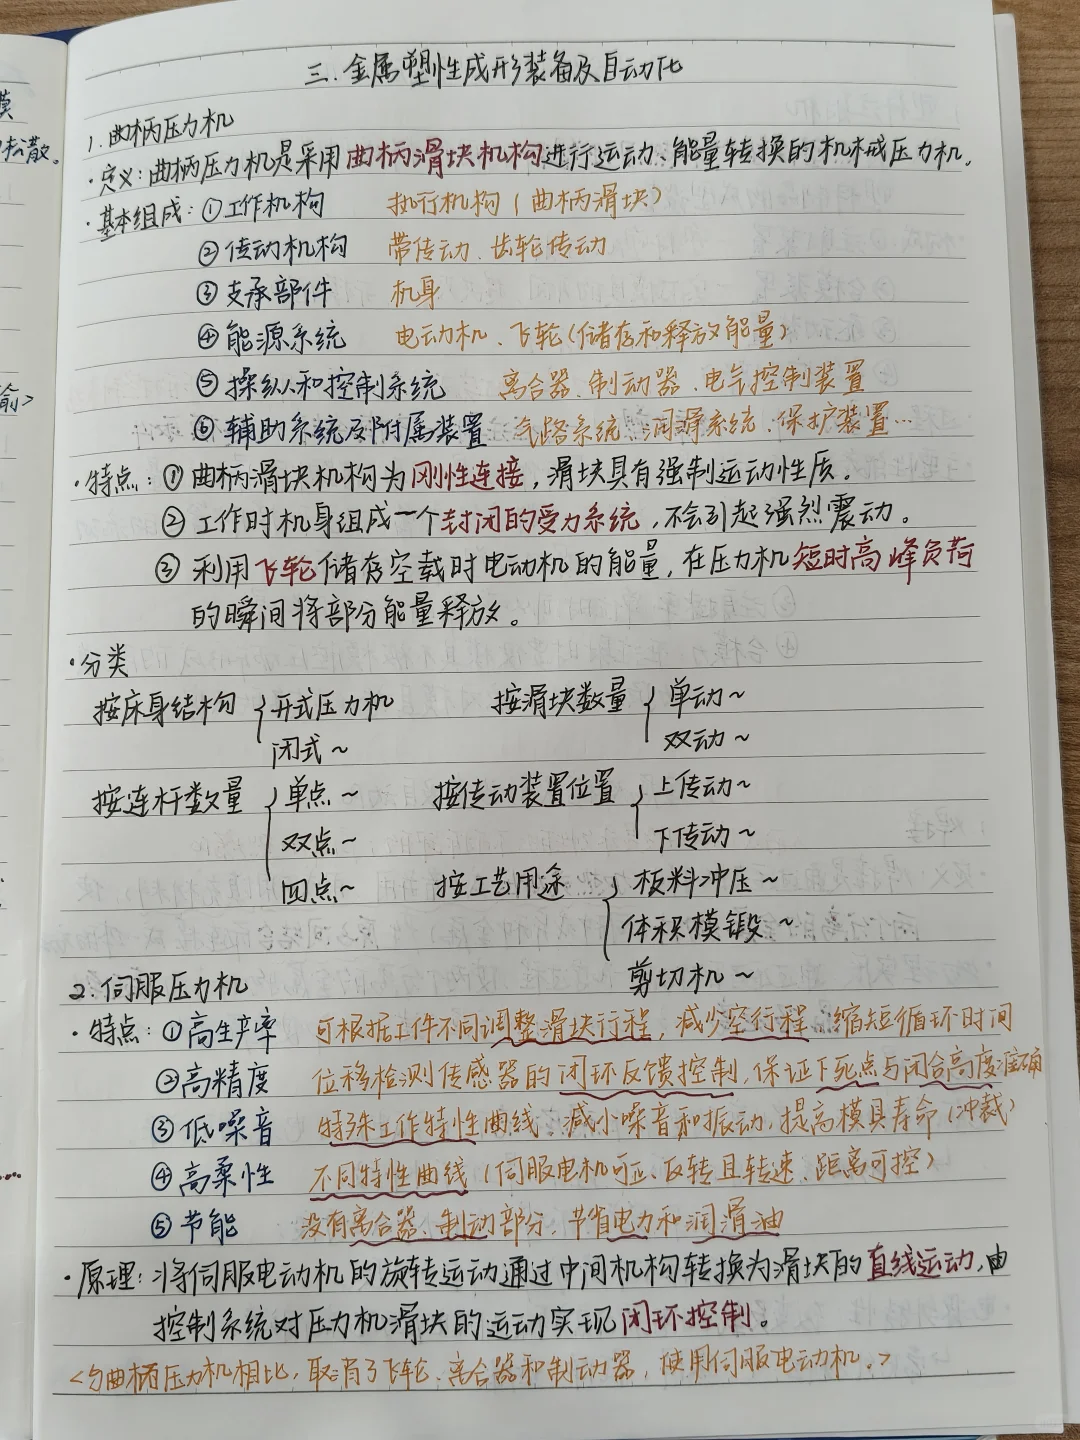 三.金属塑性成形装备及自动化
1.曲柄压力机
·定义:曲柄压力机是采用曲柄滑块机构进行运动、能量转换的机械压力机。
·基本组成:①工作机构 执行机构(曲柄滑块)
②传动机构 带传动、齿轮传动
③支承部件 机身
④能源系统 电动机、飞轮(储存和释放能量)
⑤操纵和控制系统 离合器、制动器、电气控制装置
⑥辅助系统及附属装置 气路系统、润滑系统、保护装置…
·特点:①曲柄滑块机构为刚性连接,滑块具有强制运动性质。
②工作时机身组成一个封闭的受力系统,不会引起强烈震动。
③利用飞轮储存空载时电动机的能量,在压力机短时高峰负荷
的瞬间将部分能量释放。
·分类
按床身结构 { 开式压力机 按滑块数量 { 单动~
闭式~ 双动~
按连杆数量 { 单点~ 按传动装置位置 { 上传动~
双点~ 下传动~
四点~ 按工艺用途 { 板料冲压~
体积模锻~
剪切机~
2.伺服压力机
·特点:①高生产率 可根据工件不同调整滑块行程,减少空行程、缩短循环时间
②高精度 位移检测传感器的闭环反馈控制,保证下死点与闭合高度准确
③低噪音 特殊工作特性曲线、减小噪音和振动,提高模具寿命(冲裁)
④高柔性 不同特性曲线(伺服电机可正、反转且转速、距离可控)
⑤节能 没有离合器、制动部分、节省电力和润滑油
·原理:将伺服电动机的旋转运动通过中间机构转换为滑块的直线运动,由
控制系统对压力机滑块的运动实现闭环控制。
<与曲柄压力机相比,取消了飞轮、离合器和制动器,使用伺服电动机。>